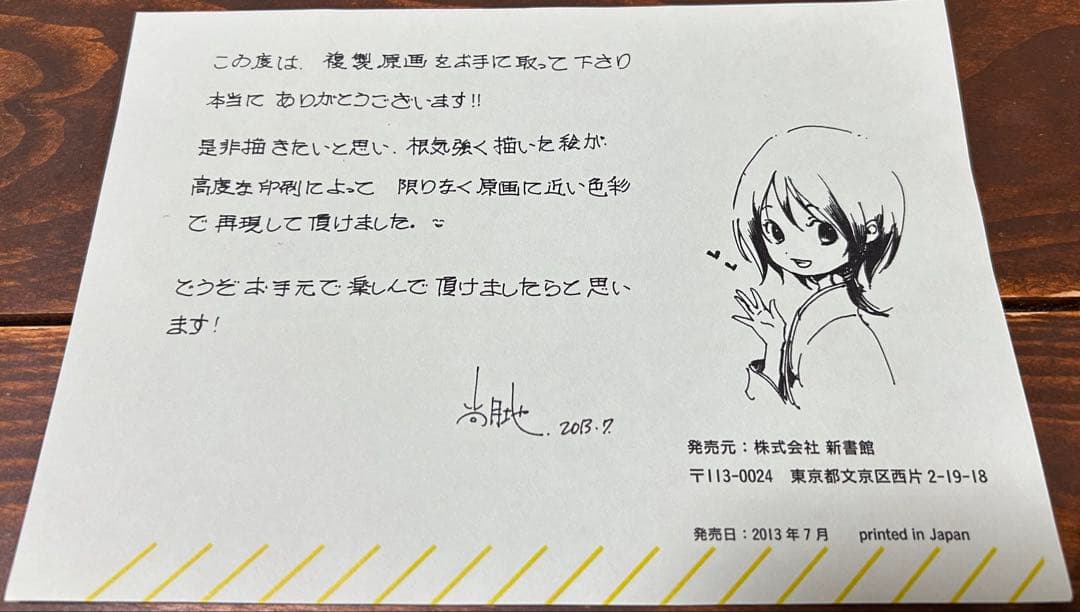 この度は、複製原画をお手に取って下さり
本当に ありがとうございます!!
是非描きたいと思い、根気強く描いた絵が
高度な印刷によって 限りなく原画に近い色彩
で再現して頂けました。
どうぞお手元で楽しんで頂けましたらと思い
ます!
尚月地. 2013.7.
発売元：株式会社 新書館
〒113-0024 東京都文京区西片 2-19-18
発売日：2013年7月 printed in Japan